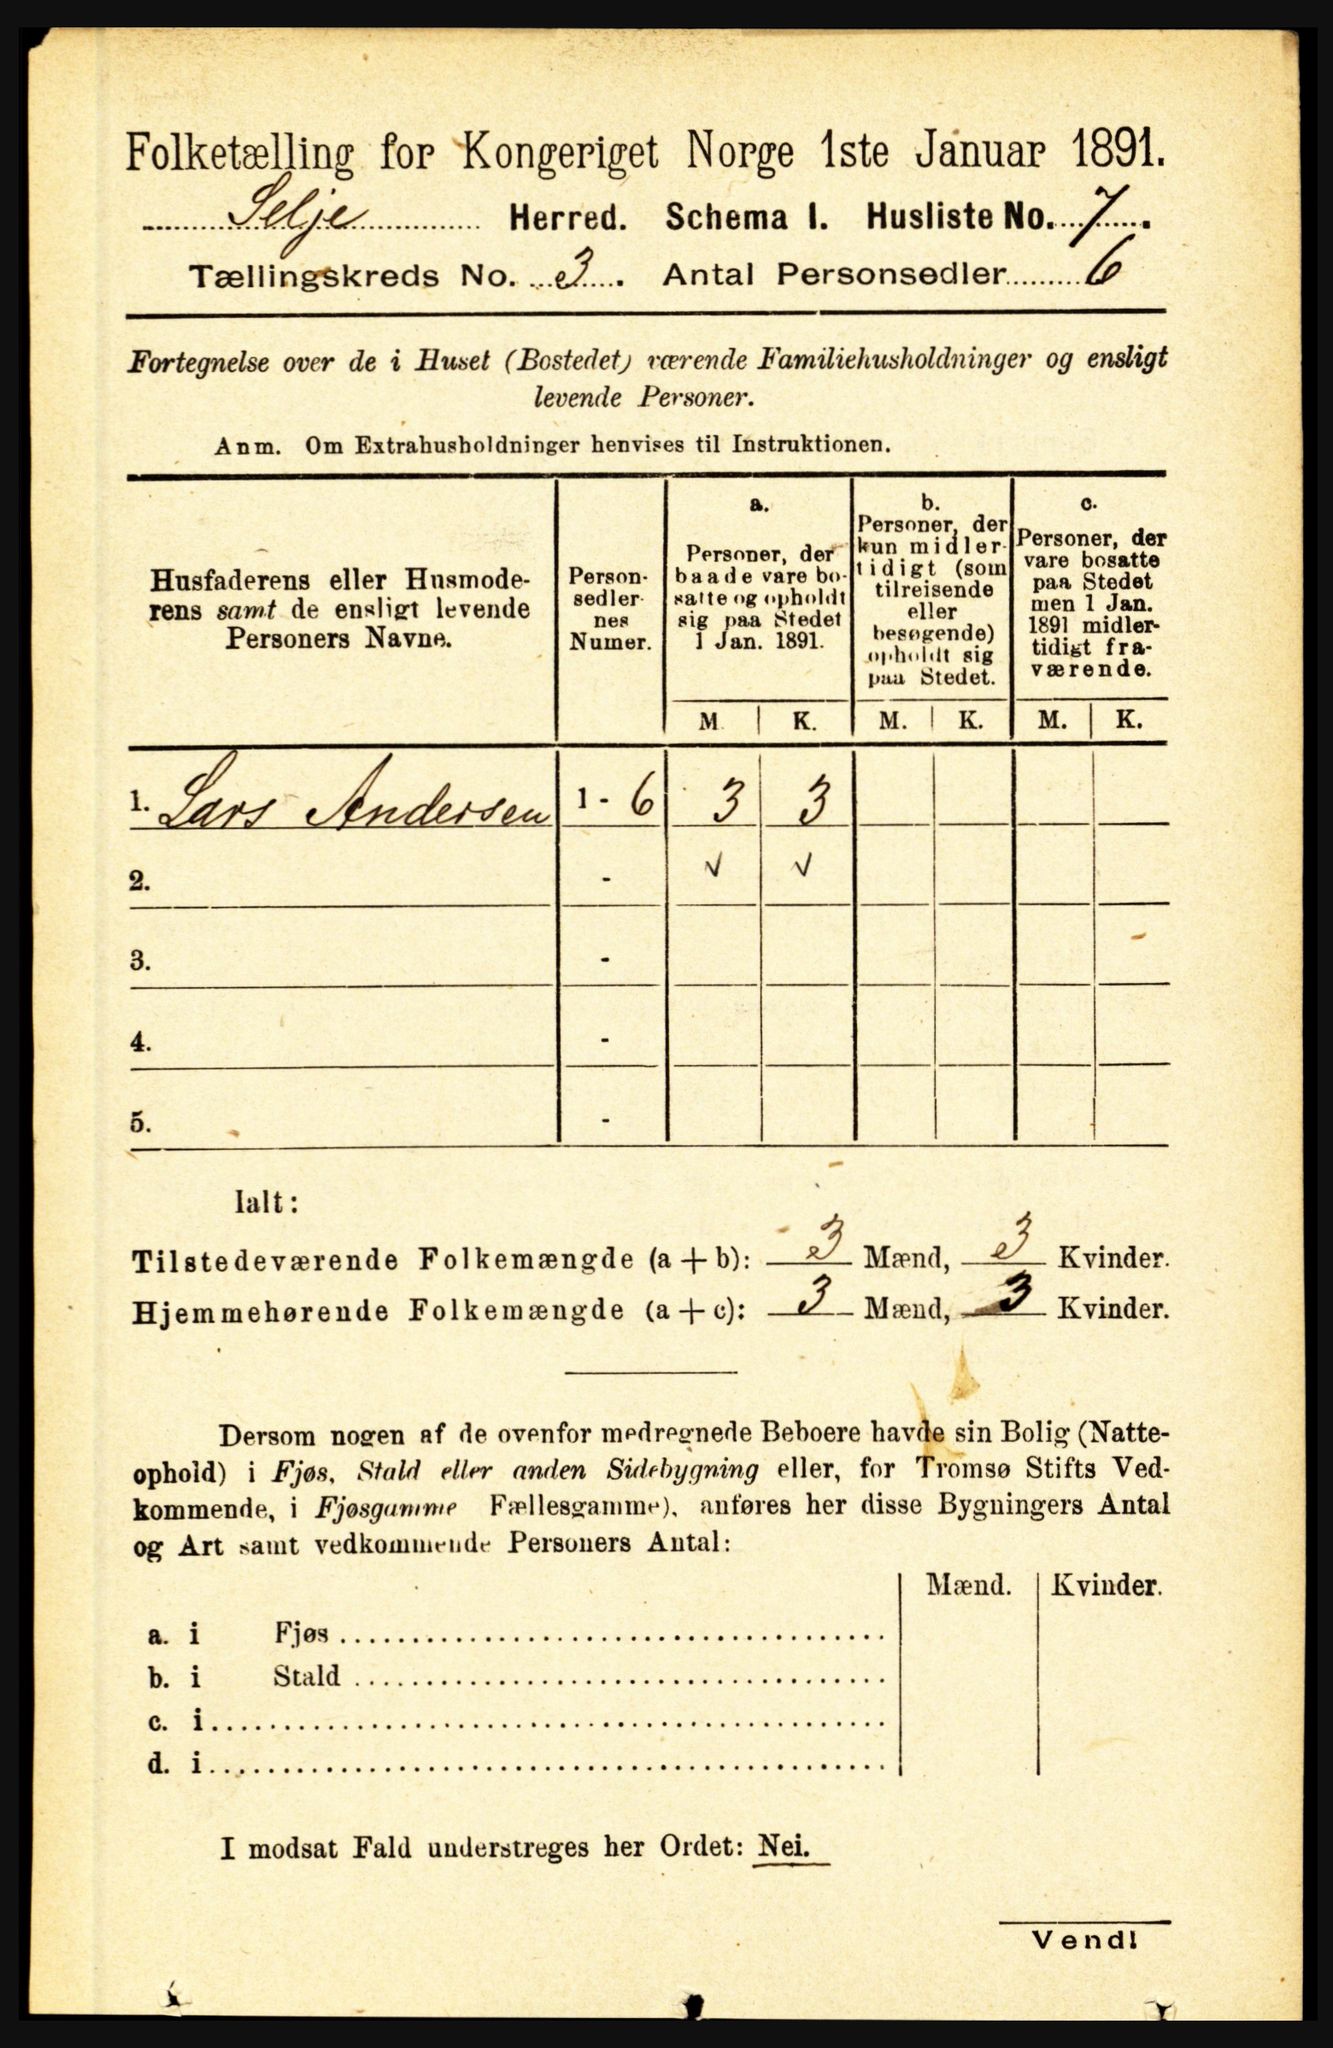 Folketælling for Kongeriget Norge 1ste Januar 1891.
Selje Herred. Schema I. Husliste No. 7.
Tællingskreds No. 3. Antal Personsedler 6
Fortegnelse over de i Huset (Bostedet) værende Familiehusholdninger og ensligt
levende Personer.
Anm. Om Extrahusholdninger henvises til Instruktionen.
Husfaderens eller Husmode-
rens samt de ensligt levende
Personers Navne.
Person-
sedler-
nes
Numer.
a.
Personer, der
baade vare bo-
satte og opholdt
sig paa Stedet
1 Jan. 1891.
b.
Personer, der
kun midler-
tidigt (som
tilreisende
eller
besøgende)
opholdt sig
paa Stedet.
c.
Personer, der
vare bosatte
paa Stedet
men 1 Jan.
1891 midler-
tidigt fra-
værende.
M. K. M. K. M. K.
1. Lars Andersen 1 - 6 3 3
2. - √ √
3. -
4. -
5. -
Ialt:
Tilstedeværende Folkemængde (a + b): 3 Mænd, 3 Kvinder.
Hjemmehørende Folkemængde (a + c): 3 Mænd, 3 Kvinder.
Dersom nogen af de ovenfor medregnede Beboere havde sin Bolig (Natte-
ophold) i Fjøs, Stald eller anden Sidebygning eller, for Tromsø Stifts Ved-
kommende, i Fjøsgamme Fællesgamme), anføres her disse Bygningers Antal
og Art samt vedkommende Personers Antal:
Mænd. Kvinder.
a. i Fjøs
b. i Stald
c. i
d. i
I modsat Fald understreges her Ordet: Nei.
Vend!